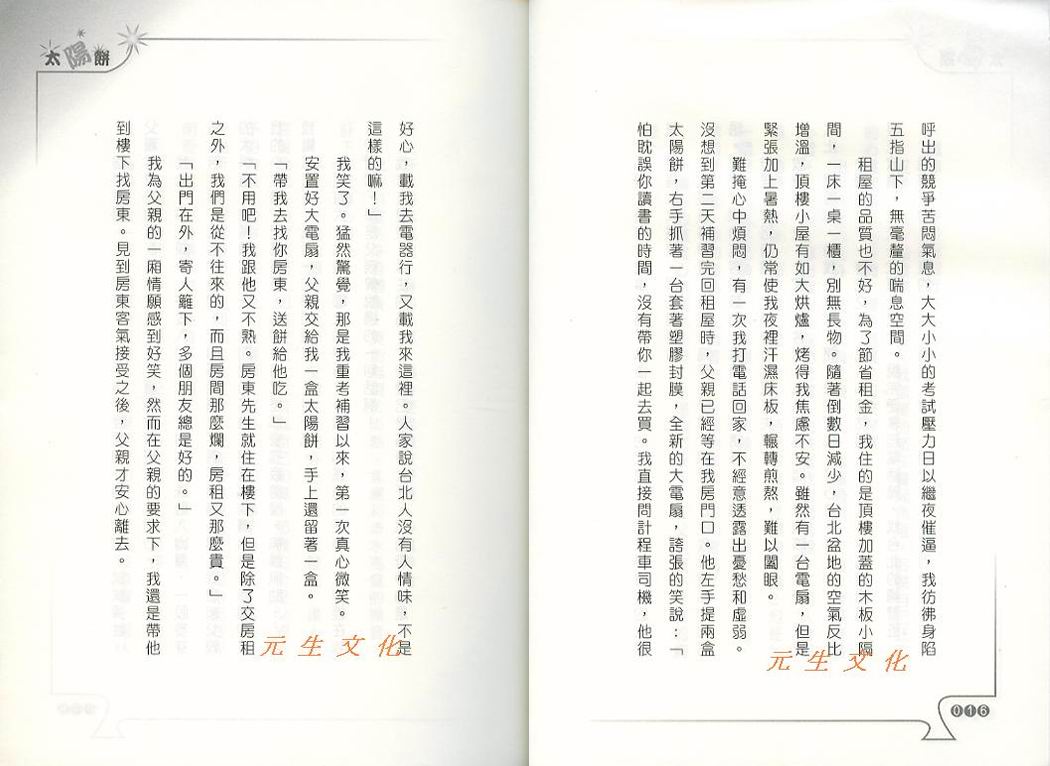 呼出的競爭苦悶氣息，大大小小的考試壓力日以繼夜催逼，我彷彿身陷
五指山下，無毫釐的喘息空間。
租屋的品質也不好，為了節省租金，我住的是頂樓加蓋的木板小隔
間，一床一桌一櫃，別無長物。隨著倒數日減少，台北盆地的空氣反比
增溫，頂樓小屋有如大烘爐，烤得我焦慮不安。雖然有一台電扇，但是
緊張加上暑熱，仍常使我夜裡汗濕床板，輾轉煎熬，難以闔眼。
難掩心中煩悶，有一次我打電話回家，不經意透露出憂愁和虛弱。
沒想到第二天補習完回租屋時，父親已經等在我房門口。他左手提兩盒
太陽餅，右手抓著一台套著塑膠封膜，全新的大電扇，誇張的笑說：「
怕耽誤你讀書的時間，沒有帶你一起去買。我直接問計程車司機，他很
016
元生文化
太陽餅
好心，載我去電器行，又載我來這裡。人家說台北人沒有人情味，不是
這樣的嘛！」
我笑了。猛然驚覺，那是我重考補習以來，第一次真心微笑。
安置好大電扇，父親交給我一盒太陽餅，手上還留著一盒。
「帶我去找你房東，送餅給他吃。」
「不用吧！我跟他又不熟。房東先生就住在樓下，但是除了交房租
之外，我們是從不往來的，而且房間那麼爛，房租又那麼貴。」
「出門在外，寄人籬下，多個朋友總是好的。」
我為父親的一廂情願感到好笑，然而在父親的要求下，我還是帶他
到樓下找房東。見到房東客氣接受之後，父親才安心離去。
元生文化